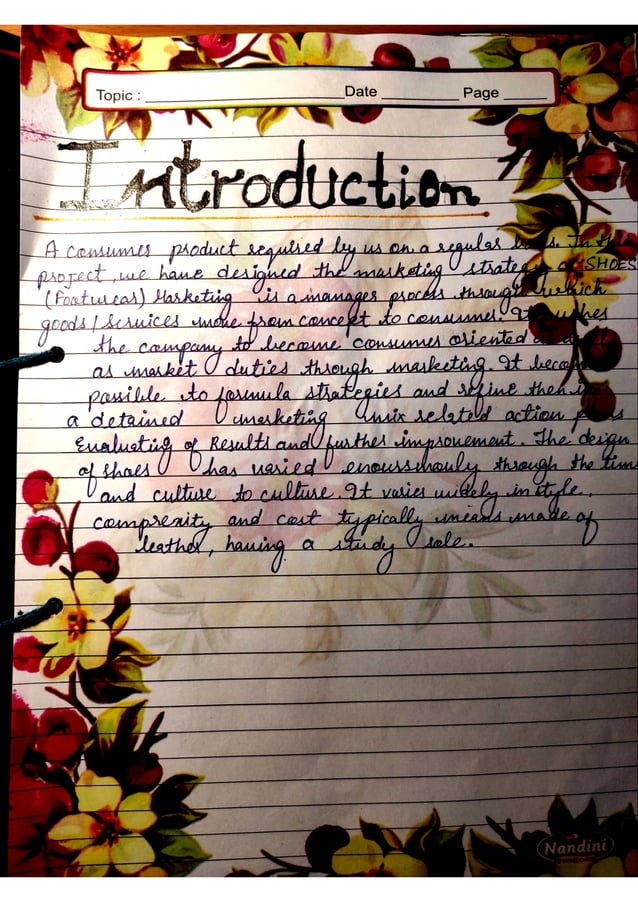 Topic : Date Page
Introduction
A consumer product required by us on a regular In this
project, we have designed the marketing strategy of SHOES
(Footwear) Marketing is a manager process through which
goods / services move from concept to consumer. It
the company to become consumer oriented as
as market duties through marketing. It
possible to formula strategies and refine then in
a detained marketing mix related action
Evaluating of Results and further improvement. The deign
of shoes has varied enoursmouly through the time
and culture to culture. It varies widely in style,
comprexity and cost typically means made of
leather, having a study sole.
Nandini